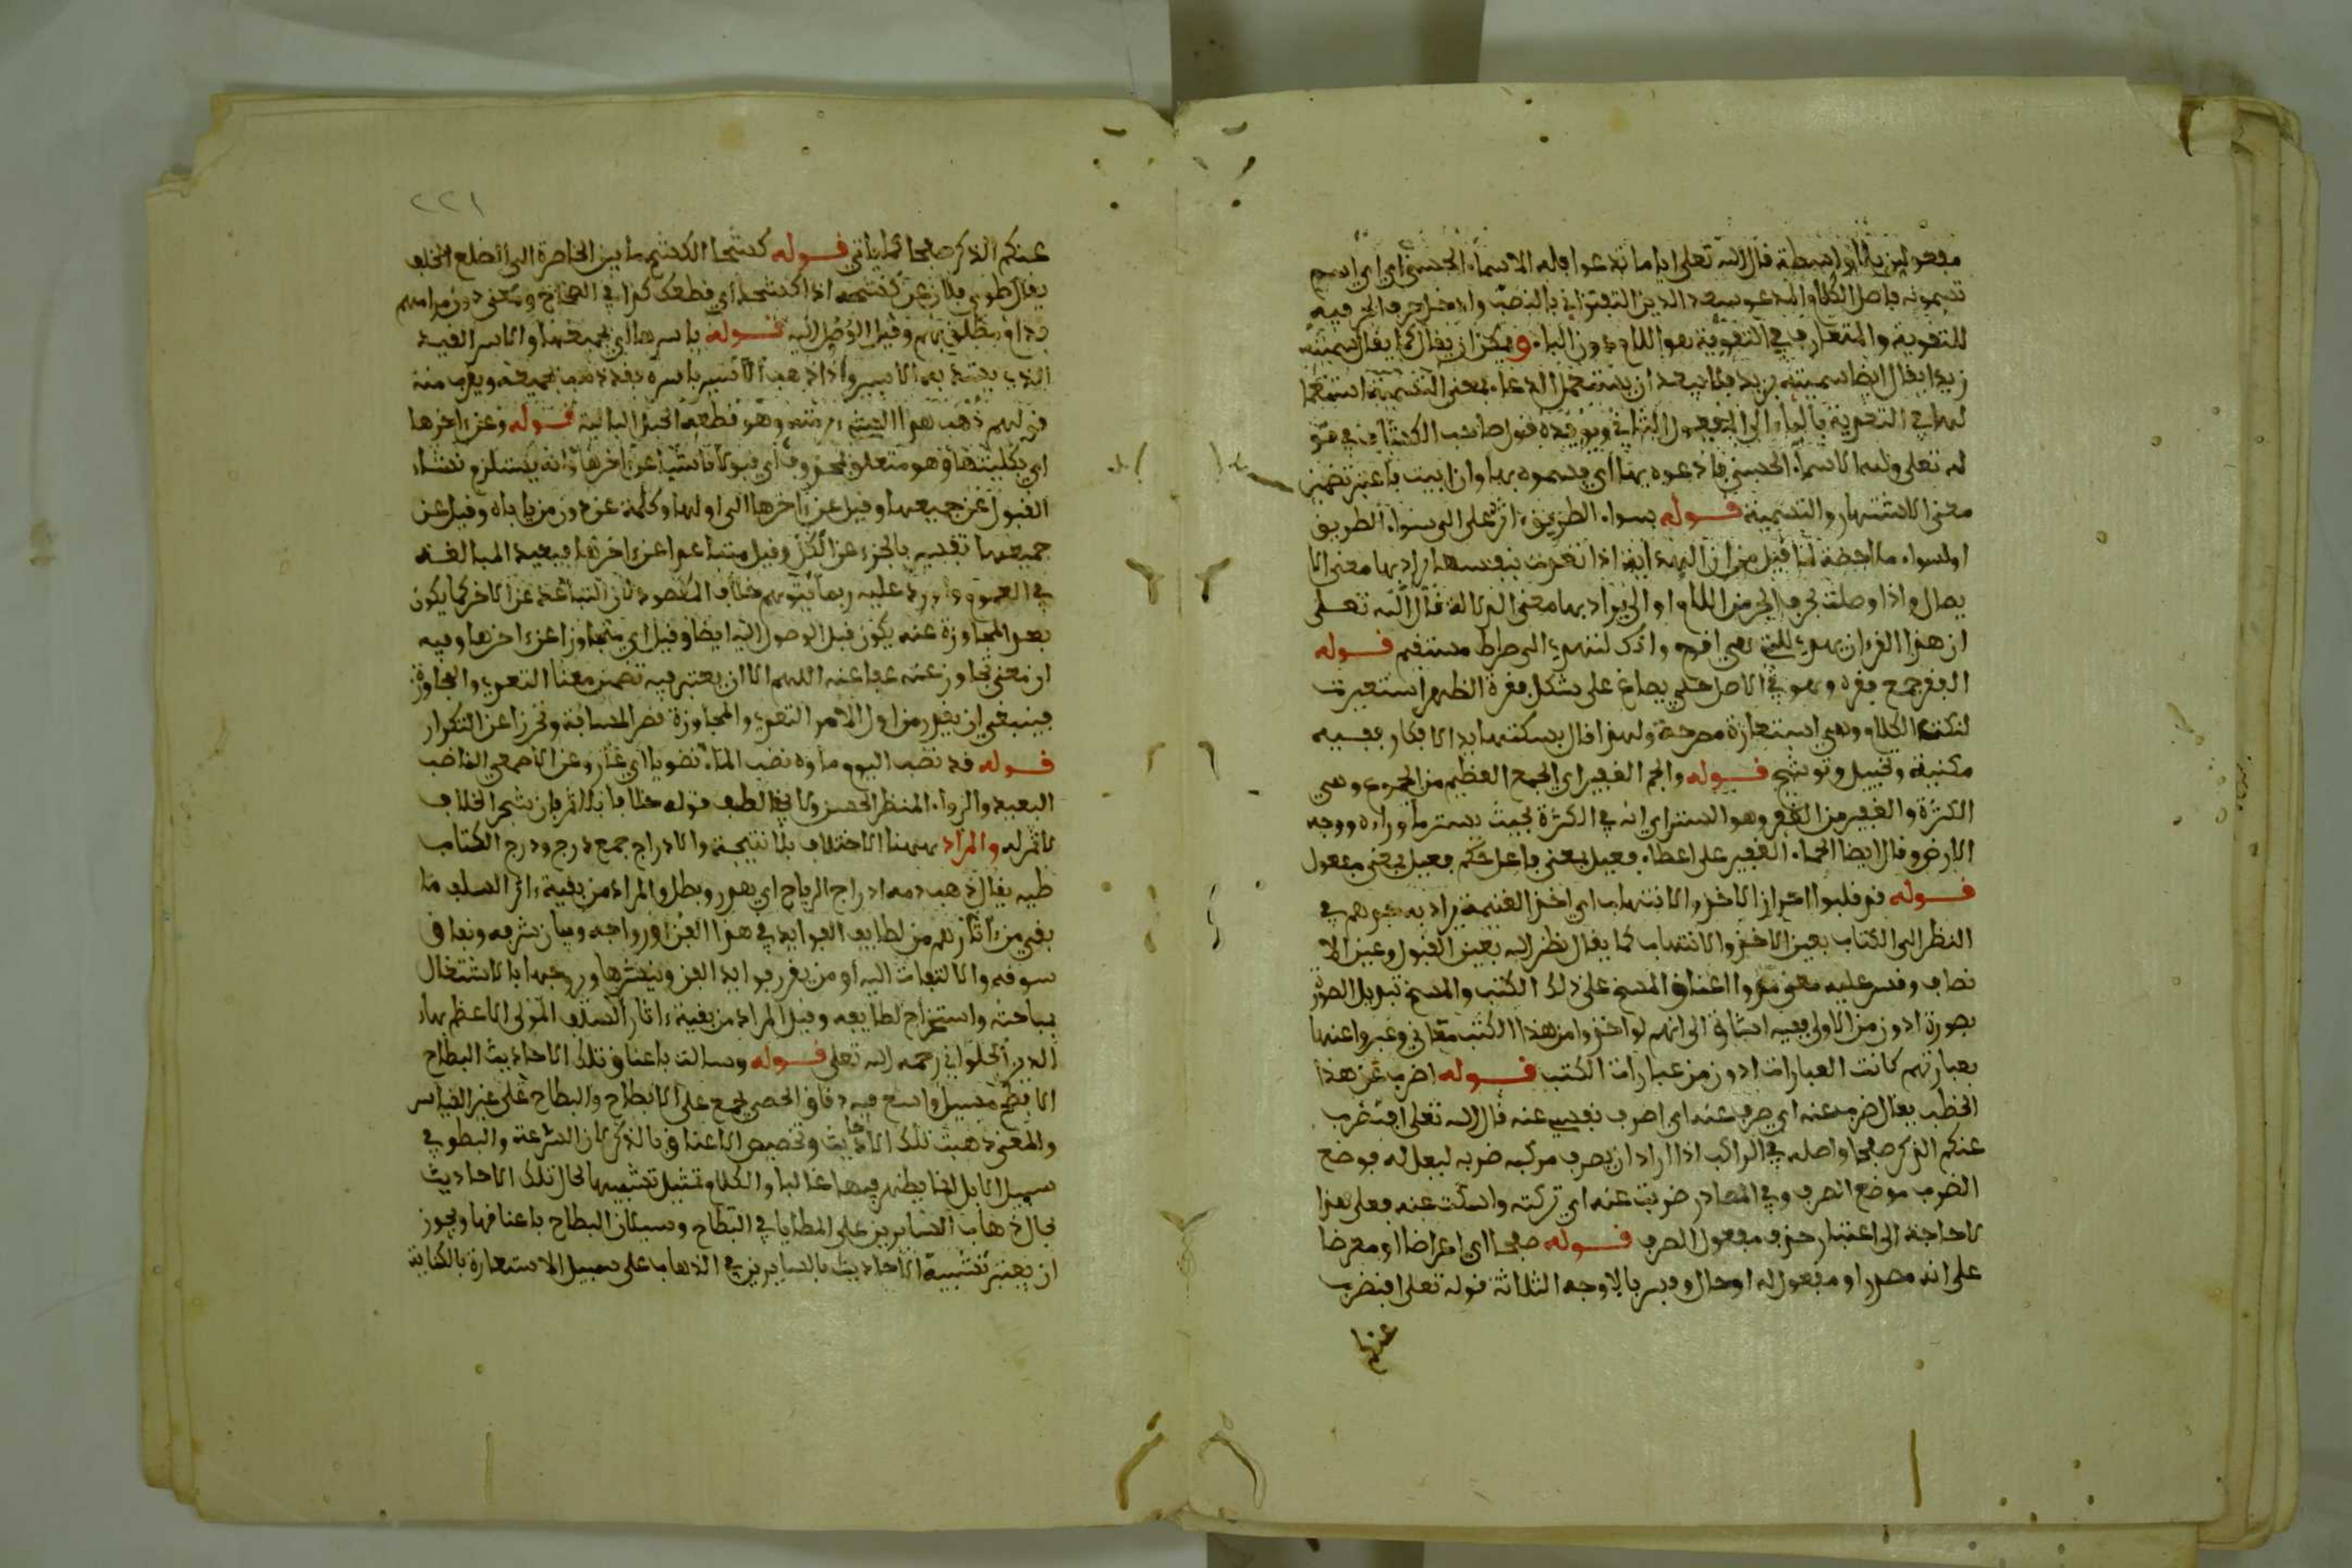 مفعولين بلا واسطة قال الله تعلى ايا ما تدعوا فله الاسماء الحسنى اي اي اسم
تسموه فاصل الكلام والمدعو سعد الدين التفتزاني بالنصب وادخل حرف الجر فيه
للتقوية والمتعارف في التقوية هو اللام دون الباء ويمكن ان يقال كما يقال سميته
زيدا يقال ايضا سميته بزيد فلا يبعد ان يستعمل الدعاء بمعنى التسمية استعما
لها في التعدية بالباء الى المفعول الثاني ويويده قول صاحب الكشاف في قو
له تعلى ولله الاسماء الحسنى فادعوه بها اي فسموه بها وان ابيت فاعتبر تضمين
معنى الاشتهار والتسمية قوله بسواء الطريق اثر على الى سواء الطريق
او لسواء ملاحظة لما قيل من ان الهداية اذا تعدت بنفسها يراد بها معنى الا
يصال واذا وصلت بحرف الجر من اللام او الى يراد بها معنى الدلالة قال الله تعلى
ان هذا القرءان يهدي للتي هي اقوم وانك لتهدي الى صراط مستقيم قوله
الفقر جمع فقرة وهو في الاصل حلي يصاغ على شكل فقرة الظهر استعيرت
لنكتة الكلام وهي استعارة مصرحة ولهذا قال بسكتها يد الافكار ففيه
مكنية وتخييل وترشيح قوله والجم الغفير اي الجمع العظيم من الجموم وهي
الكثرة والغفير من الغفر وهو الستر اي انه في الكثرة بحيث يستر ما وراءه ووجه
الارض وقال ايضا الجماء الغفير على اعطاء فعيل بمعنى فاعل حكم فعيل بمعنى مفعول
قوله قد قلبوا احداق الاخذ والانتهاب اي اخذ الغنيمة يراد به نحوهم في
النظر الى الكتاب بعين الاخذ والانتهاب كما يقال نظر اليه بعين القبول وعين الا
نصاف وقس عليه معنى مدوا اعناق المسخ على ذلك الكتب والمسخ تبديل الصورة
بصورة ادون من الاولى ففيه اشارة الى انهم لو اخذوا من هذا الكتب معاني وعبروا عنها
بعبارتهم كانت العبارات ادون من عبارات الكتب قوله اضرب عن هذا
الخطب يقال ضرب عنه اي صرف عنه اي اصرف نفسي عنه قال الله تعلى افنضرب
عنكم الذكر صفحا واصله في الراكب اذا اراد ان يصرف مركبه ضربه ليعدله فوضع
الضرب موضع الصرف وفي المصادر ضربت عنه اي تركته وامسكت عنه فعلى هذا
لا حاجة الى اعتبار حذف مفعول الصرف قوله صفحا اي اعراضا او معرضا
على انه مصدر او مفعول له او حال وفسر بالاوجه الثلاثة قوله تعلى افنضرب
عنكم
٢٢١
عنكم الذكر صفحا كما ياتي قوله كشحا الكشح ما بين الخاصرة الى الضلع الخلف
يقال طوى فلان عني كشحه اذا قطعك كذا في الصحاح ومعنى دون مرامهم
قدام مطلوبهم وقبل الوصول اليه قوله باسرها اي بجميعها والاسر القيد
الذي يشد به الاسير واذا ذهب الاسير باسره فقد ذهب بجميعه ويقرب منه
قولهم ذهب هذا الشيء برمته وهو قطعة الحبل البالية قوله وعن اخرها
اي بكليتها وهو متعلق بمحذوف اي قبولا ناشيا عن اخرها فانه يستلزم نشاء
القبول عن جميعها وقيل عن اخرها الى اولها وكلمة عن دون من ياباه وقيل عن
جميعها تعبير بالجزء عن الكل وقيل متباعدا عن اخرها فيفيد المبالغة
في العموم واورد عليه ربما يتوهم خلاف المقصود لان التباعد عن الاخر كما يكون
بعد المجاوزة عنه يكون قبل الوصول اليه ايضا وقيل اي متجاوزا عن اخرها وفيه
ان معنى تجاوز عنه عفا عنه اللهم الا ان يعتبر فيه تضمن معنا التعدي والمجاوزة
فينبغي ان يقدر من اول الامر التعدي والمجاوزة قصر المسافة وتحرزا عن التكرار
قوله قد نضب اليوم ماؤه نضب الماء نضوبا اي غار وعن الاصمعي الناضب
البعيد والرواء المنظر الحسن ولا يخفى لطف قوله خلافا بلا ثمر فان شجر الخلاف
لا ثمر له والمراد ههنا الاختلاف بلا نتيجة والادراج جمع درج ودرج الكتاب
طيه يقال ذهب دمه ادراج الرياح اي هدر وبطل والمراد من بقية اثار السلف ما
بقي من اثارهم من لطايف الفوايد في هذا الفن او رواجه وبيان شرفه ونفاق
سوقه والالتفات اليه او من يقرر فوايد الفن وينشرها وروجها بالاشتغال
بمباحثه واستخراج لطايفه وقيل المراد من بقية اثار السلف المولى الاعظم بهاء
الدين الحلواني رحمه الله تعلى قوله وسالت باعناق تلك الاحاديث البطاح
الابطح مسيل واسع فيه دقاق الحصى يجمع على الاباطح والبطاح على غير القياس
والمعنى ذهبت تلك الاحاديث وتخصيص الاعناق بالذكر لان السرعة والبطو في
سير الابل انما يظهر فيها غالبا والكلام تمثيل تشبيها لحال تلك الاحاديث
بحال ذهاب السايرين على المطايا في البطاح وسيلان البطاح باعناقها ويجوز
ان يعتبر تشبيه الاحاديث بالسايرين في الذهاب على سبيل الاستعارة بالكناية